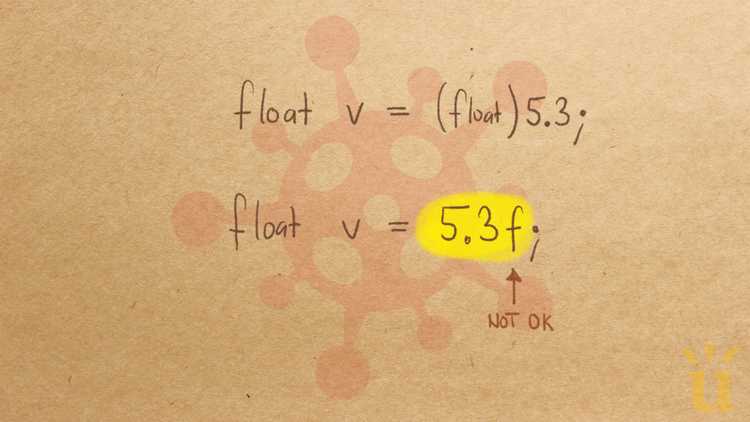 float v = (float)5.3;
float v = 5.3f;
NOT OK
u